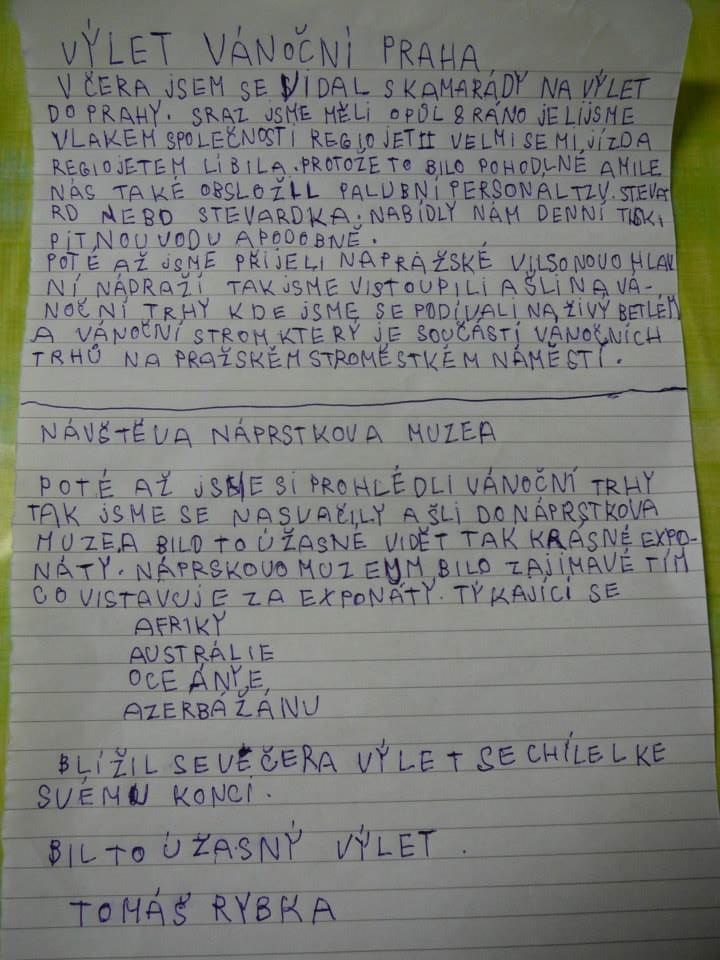 VÝLET VÁNOČNÍ PRAHA
VČERA JSEM SE VIDAL S KAMARÁDY NA VÝLET
DO PRAHY. SRAZ JSME MĚLI OPŮL 8 RÁNO JELIJSME
VLAKEM SPOLEČNOSTÍ REGIOJETII VELMI SE MI JÍZDA
REGIOJETEM LÍBILA. PROTOŽE TO BILO POHODLNÉ A MILE
NÁS TAKÉ OBSLOŽILL PALUBNÍ PERSONAL TZV. STEVA
RD NEBO STEVARDKA. NABÍDLY NÁM DENNÍ TISK,
PITNOU VODU A PODOBNĚ.
POTÉ AŽ JSME PŘIJELI NAPRAŽSKÉ VILSONOVO HLAV
NÍ NÁDRAŽÍ TAK JSME VISTOUPILI A ŠLI NA VÁ-
NOČNÍ TRHY KDE JSME SE PODÍVALI NA ŽIVÝ BETLÉM
A VÁNOČNÍ STROM KTERÝ JE SOUČÁSTÍ VÁNOČNÍCH
TRHŮ NA PRAŽSKÉM STROMĚSTKÉM NÁMĚSTÍ.
NÁVŠTĚVA NÁPRSTKOVA MUZEA
POTÉ AŽ JSME SI PROHLÉDLI VÁNOČNÍ TRHY
TAK JSME SE NASVAČILY A ŠLI DO NÁPRSTKOVA
MUZEA BILO TO ÚŽASNÉ VIDĚT TAK KRÁSNÉ EXPO-
NÁTY. NÁPRSKOVO MUZEUM BILO ZAJÍMAVÉ TÍM
CO VISTAVUJE ZA EXPONÁTY. TÝKAJÍCÍ SE
AFRIKY
AUSTRÁLIE
OCEÁNYE
AZERBÁŽÁNU
BLÍŽIL SE VEČERA VÝLET SE CHÍLEL KE
SVÉMU KONCI.
BIL TO ÚŽASNÝ VÝLET.
TOMÁŠ RYBKA